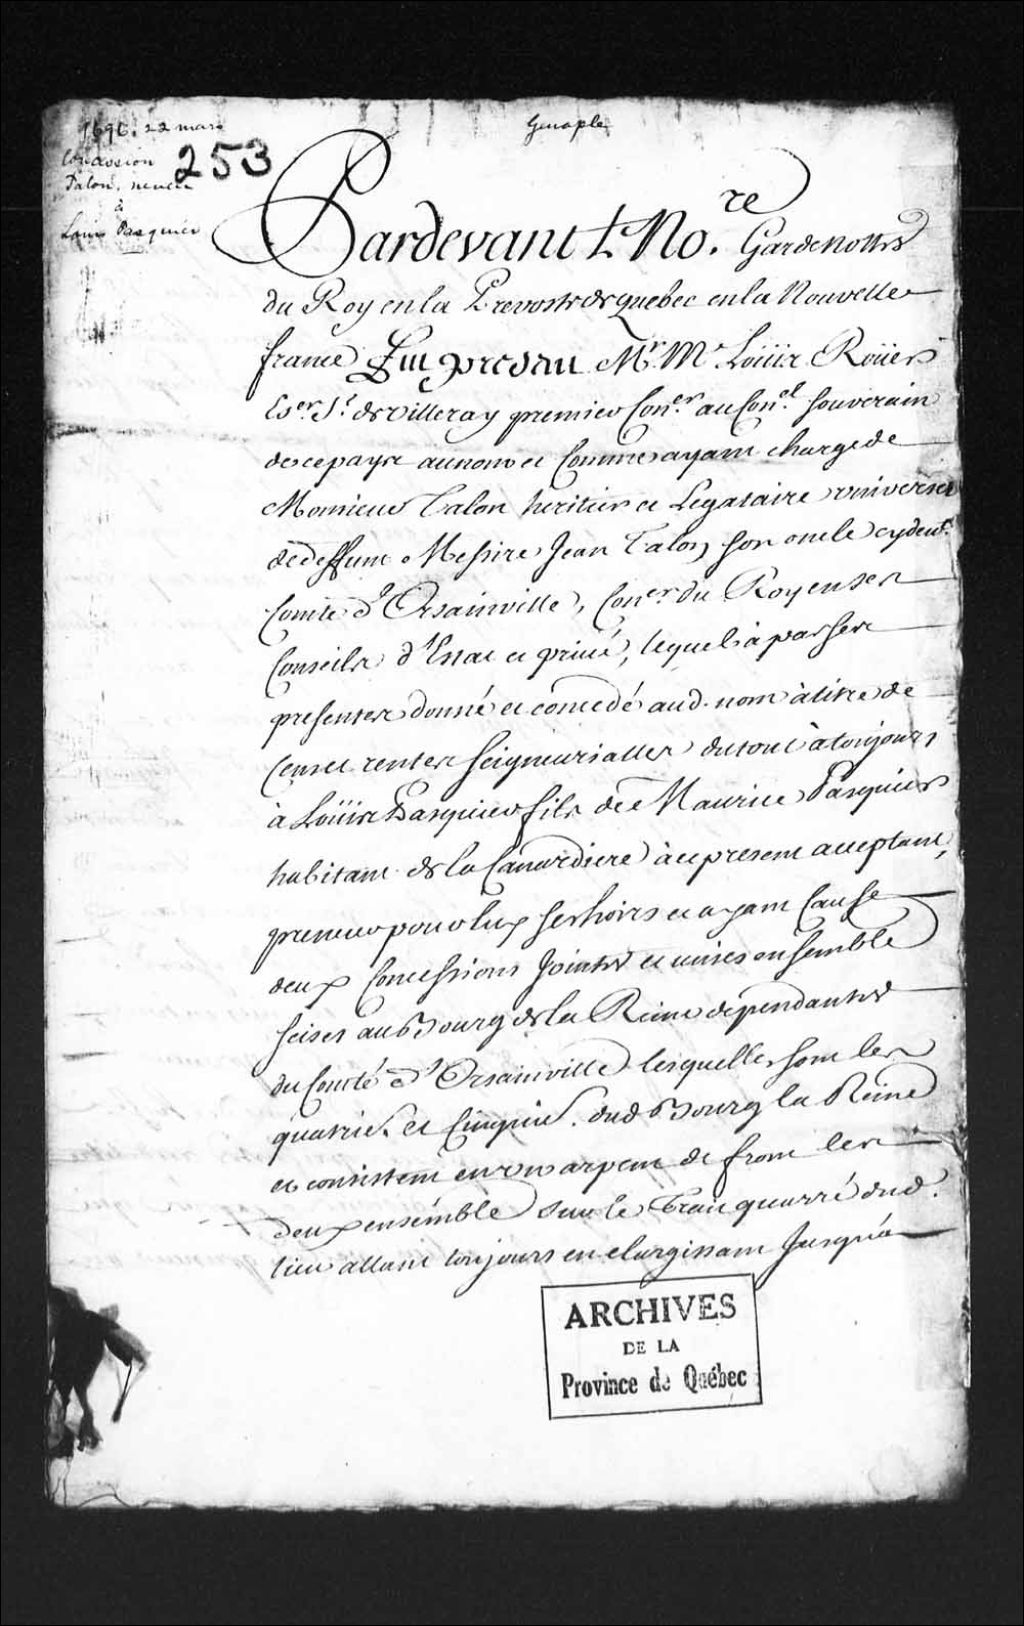 1696. 22 mars
Concession
Talon, neveu
à
Louis Pasquier
253
Genaple
Pardevant L No.re Gardenottes
du Roy en la Prevosté de quebec en la Nouvelle
france Fut present Mr. Me. Loüis Roüer
Escr Sr. de villeray premier Coner. au Conel. souverain
de ce pays au nom et Comme ayant charge de
Monsieur Talon heritier et Legataire universel
de deffunt Messire Jean Talon son oncle cydevt.
Comte d'Orsainville, Coner. du Roy en ses
Conseils d'Estat et privé, lequel à par ses
presentes donné et concedé aud. nom à titre de
Cens et rentes seigneurialles du tout à toujours
à Loüis Pasquier fils de Maurice Pasquier
habitant de la Canardiere à ce present acceptant,
preneur pour luy ses hoirs et ayant Cause
deux Concessions Jointes et unies ensemble
seises au Bourg de la Reine dependantes
du Comté d'Orsainville lesquelles sont les
quatrie. et Cinquie. dud Bourg la Reine
et consistent en un arpent de front les
deux ensemble sur le Trait quarré dud.
lieu allant toujours en elargissant Jusqu'à
ARCHIVES
DE LA
Province de Québec